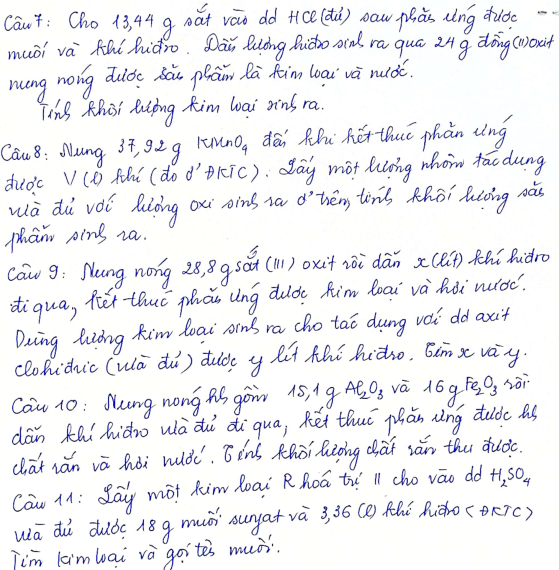 Câu 7: Cho 13,44 g sắt vào dd HCl (đủ) sau phản ứng được
muối và khí hiđro. Dẫn lượng hiđro sinh ra qua 24 g đồng (II) oxit
nung nóng được sản phẩm là kim loại và nước.
Tính khối lượng kim loại sinh ra.
Câu 8: Nung 37,92 g KMnO4 đến khi kết thúc phản ứng
được V (l) khí (đo ở ĐKTC). Lấy một lượng nhôm tác dụng
vừa đủ với lượng oxi sinh ra ở trên, tính khối lượng sản
phẩm sinh ra.
Câu 9: Nung nóng 28,8 g sắt (III) oxit rồi dẫn x (lít) khí hiđro
đi qua, kết thúc phản ứng được kim loại và hơi nước.
Dùng lượng kim loại sinh ra cho tác dụng với dd axit
clohiđric (vừa đủ) được y lít khí hiđro. Tìm x và y.
Câu 10: Nung nóng hh gồm 15,1 g Al2O3 và 16 g Fe2O3 rồi
dẫn khí hiđro vừa đủ đi qua, kết thúc phản ứng được hh
chất rắn và hơi nước. Tính khối lượng chất rắn thu được.
Câu 11: Lấy một kim loại R hoá trị II cho vào dd H2SO4
vừa đủ được 18 g muối sunfat và 3,36 (l) khí hiđro (ĐKTC)
Tìm kim loại và gọi tên muối.